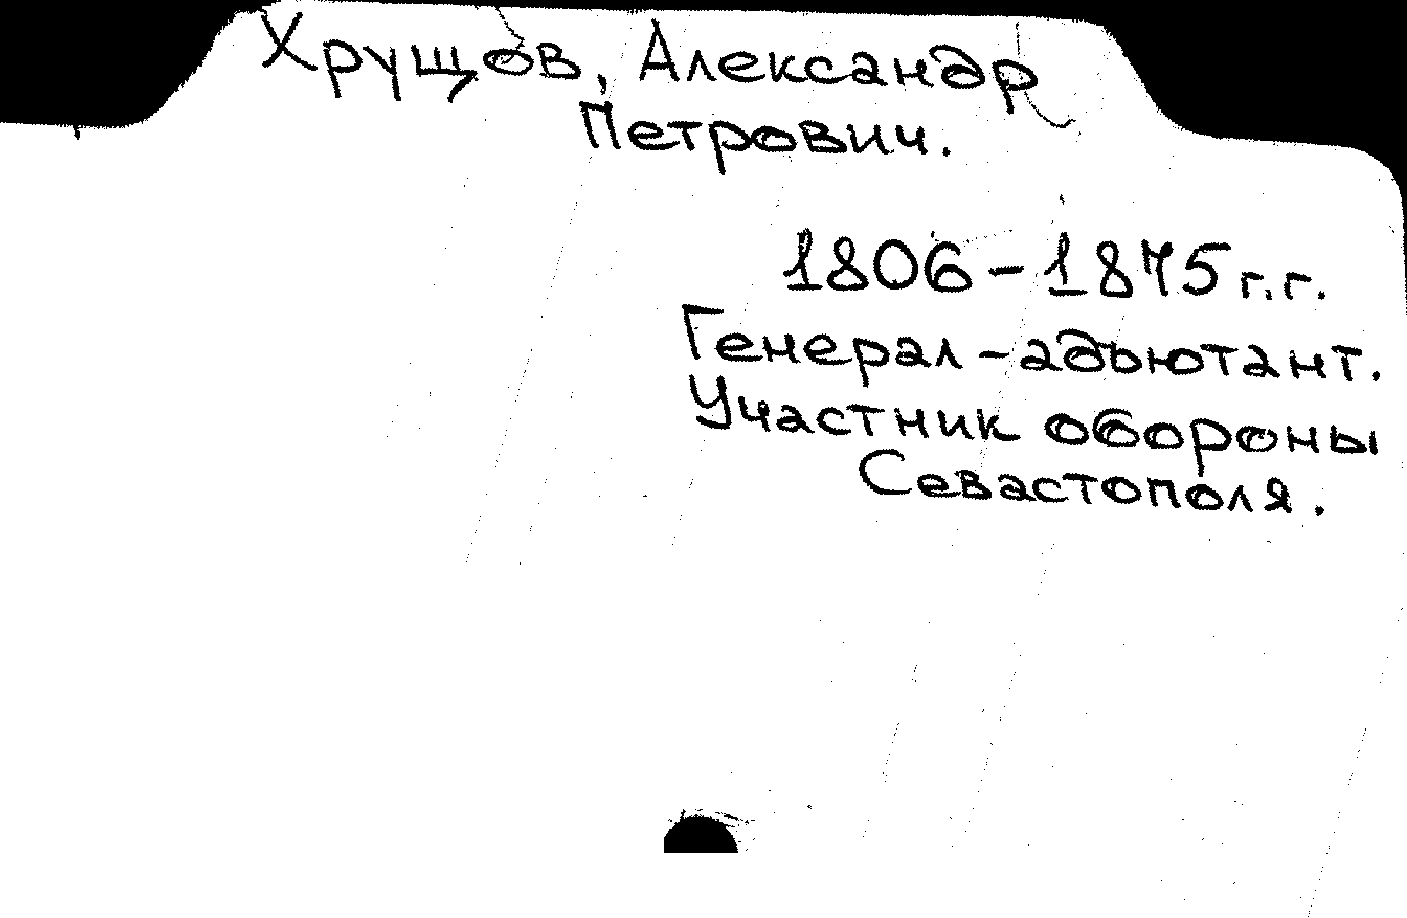 Хрущов, Александр
Петрович.
1806-1875 г.г.
Генерал-адъютант.
Участник обороны
Севастополя.